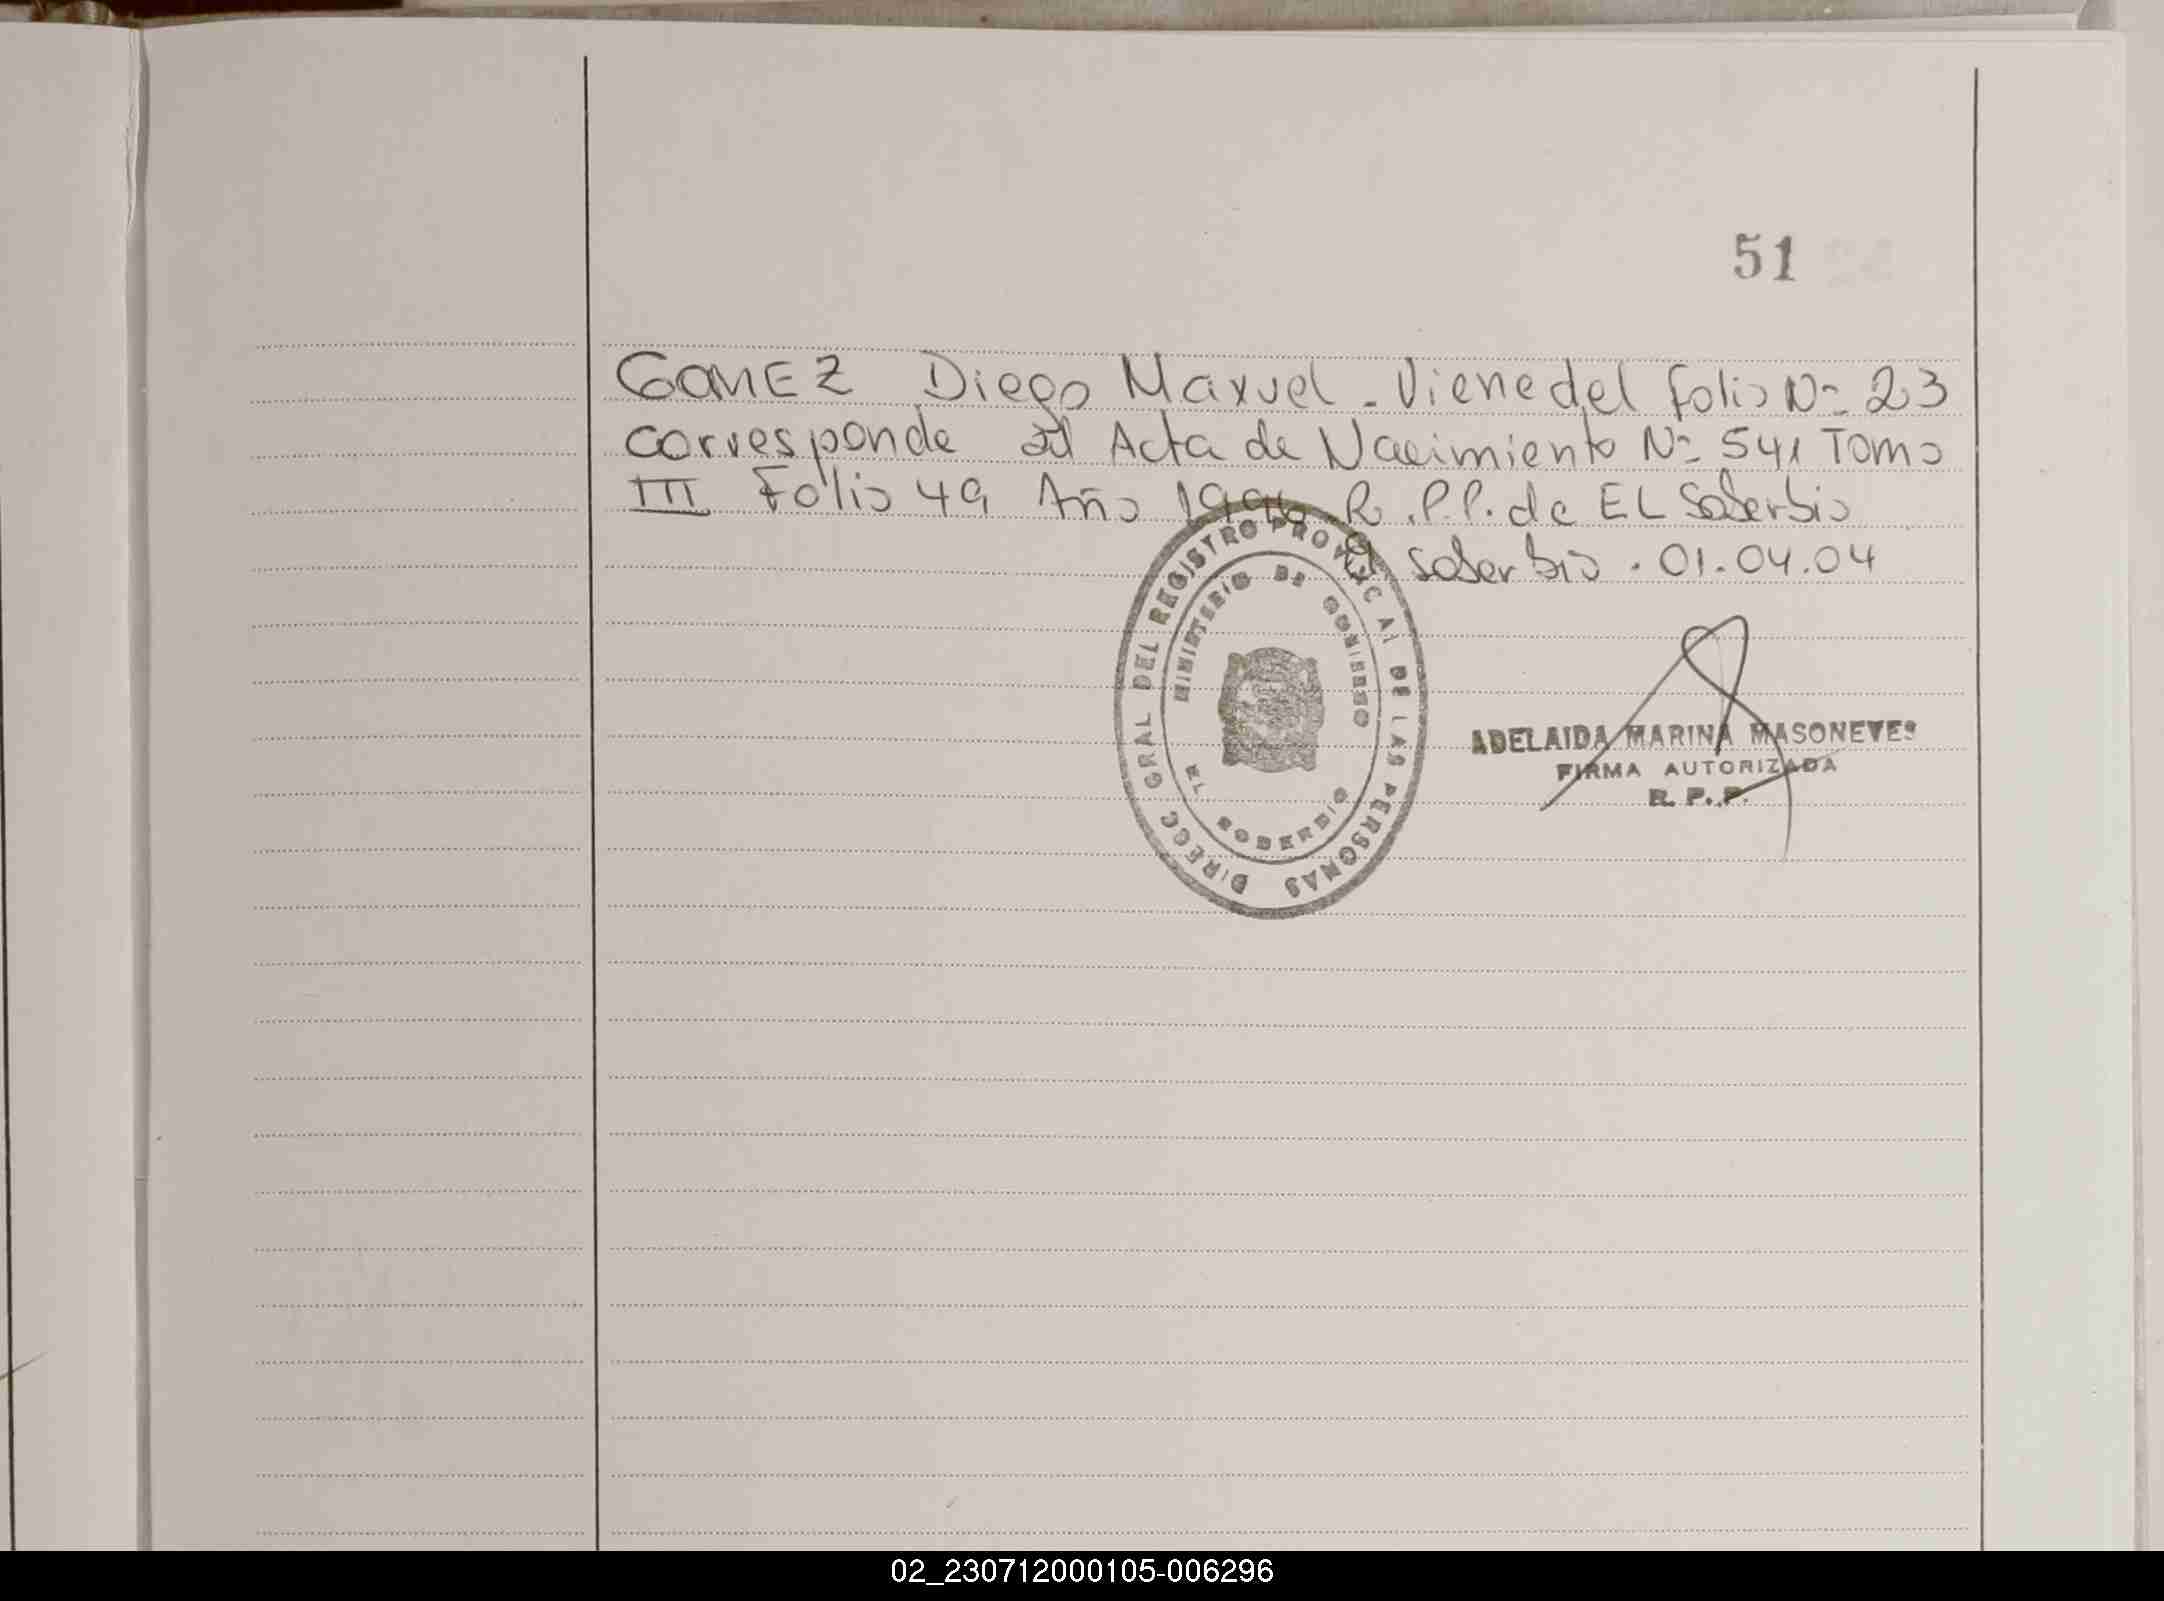 51
GOMEZ Diego Maxuel - Viene del folio Nº 23
corresponde al Acta de Nacimiento Nº 541 Tomo
III Folio 49 Año 1996 R.P.P. de EL Soberbio
El Soberbio . 01.04.04
DIRECC GRAL DEL REGISTRO PROVINCIAL DE LAS PERSONAS
MINISTERIO DE GOBIERNO
EL SOBERBIO
ADELAIDA MARINA MASONEVES
FIRMA AUTORIZADA
R. P. P.
02_230712000105-006296